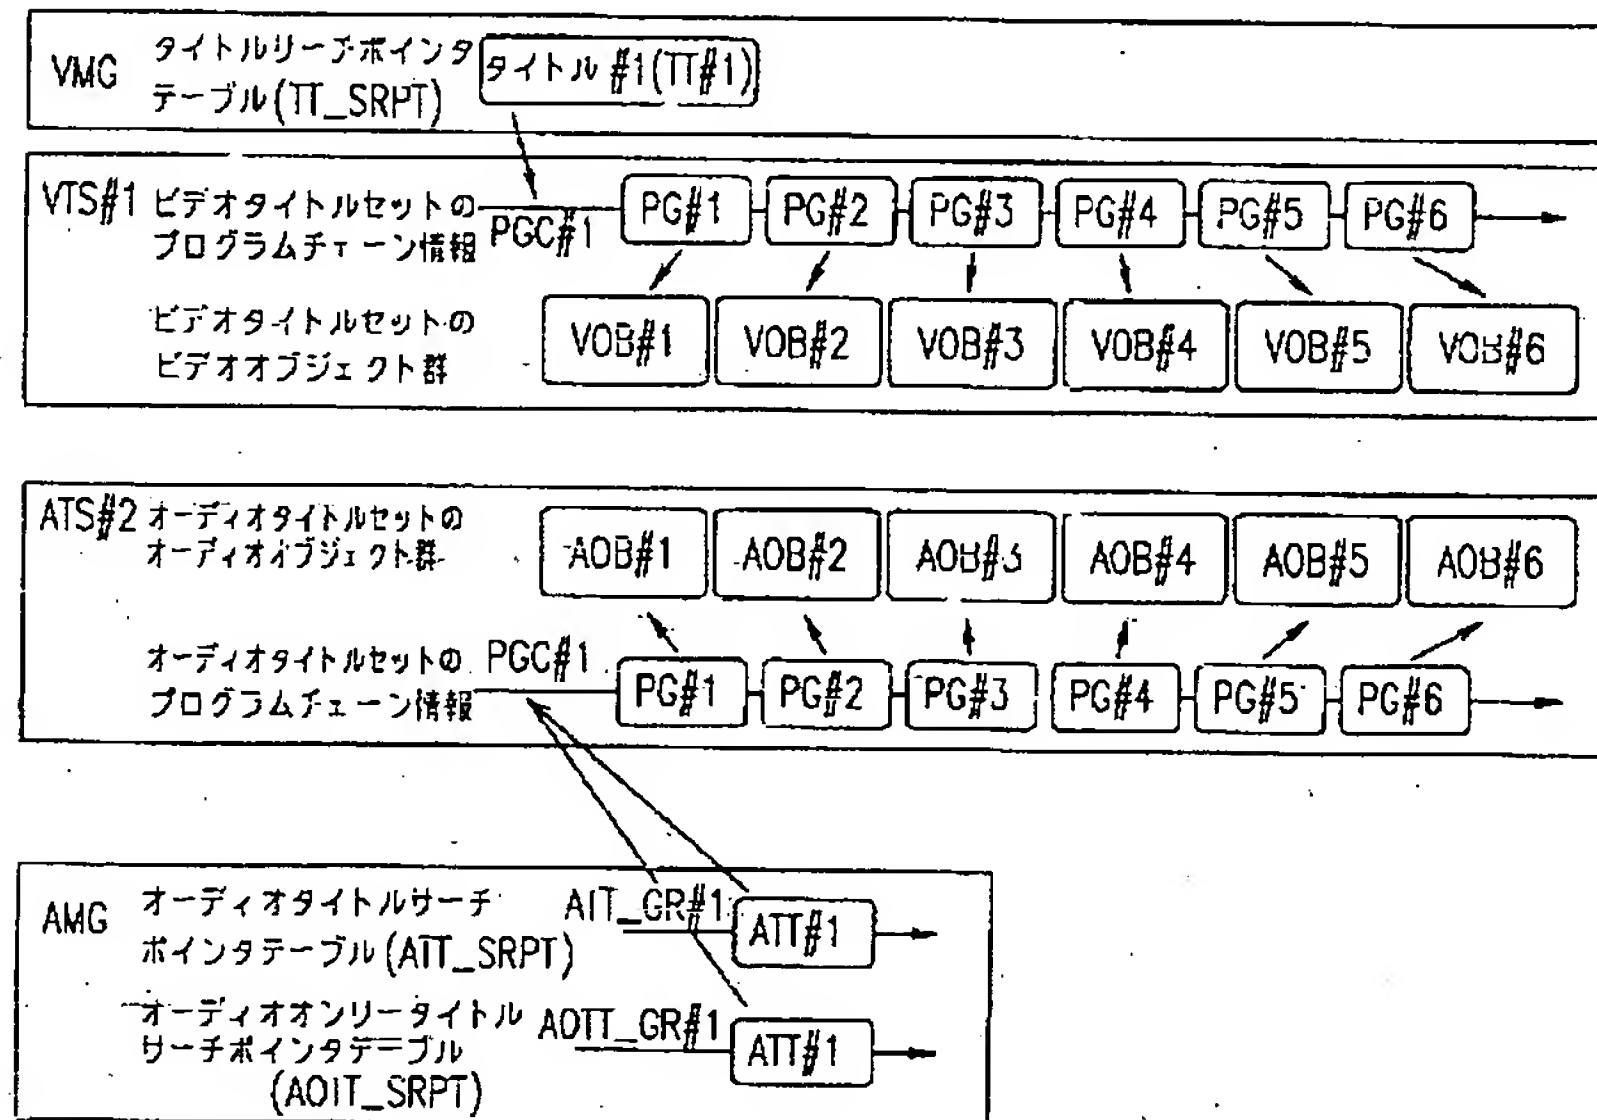 VMG
タイトルリーチポインタ
テーブル(TT_SRPT)
タイトル #1(TT#1)
VTS#1
ビデオタイトルセットの
プログラムチェーン情報
PGC#1
PG#1 PG#2 PG#3 PG#4 PG#5 PG#6
ビデオタイトルセットの
ビデオオブジェクト群
VOB#1 VOB#2 VOB#3 VOB#4 VOB#5 VOB#6
ATS#2
オーディオタイトルセットの
オーディオオブジェクト群
AOB#1 AOB#2 AOB#3 AOB#4 AOB#5 AOB#6
オーディオタイトルセットの
プログラムチェーン情報
PGC#1
PG#1 PG#2 PG#3 PG#4 PG#5 PG#6
AMG
オーディオタイトルサーチ
ポインタテーブル(ATT_SRPT)
ATT_GR#1
ATT#1
オーディオオンリータイトル
サーチポインタテーブル
(AOTT_SRPT)
AOTT_GR#1
ATT#1